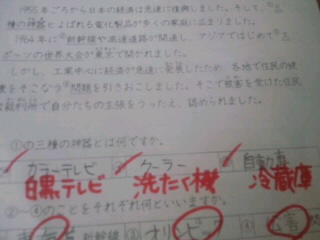 1955年ごろから日本の経済は急速に復興しました。そして、①三
種の神器とよばれる電化製品が多くの家庭に広まりました。
1964年に②新幹線や高速道路が開通し、アジアではじめて③ス
ポーツの世界大会が東京で開かれました。
しかし、工業中心に経済が急速に発展したため、各地で住民の健
康をそこなう④問題を引きおこしました。そこで被害を受けた住民
は裁判所で自分たちの主張をうったえ、認められました。
①の三種の神器とは何ですか。
カラーテレビ クーラー 自動車
白黒テレビ 洗たく機 冷蔵庫
②〜④のことをそれぞれ何といいますか。
新幹線 ③ オリンピック ④ 公害